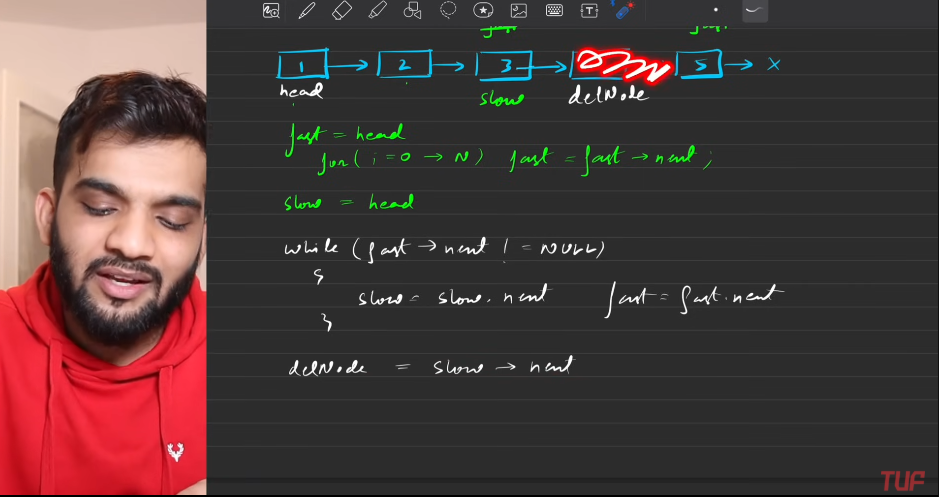 1 2 3 5 x
head slow delNode
fast = head
for( i = 0 → N) fast = fast → next;
slow = head
while (fast → next ! = NULL)
{
slow = slow. next fast = fast. next
}
delNode = slow → next
TUF